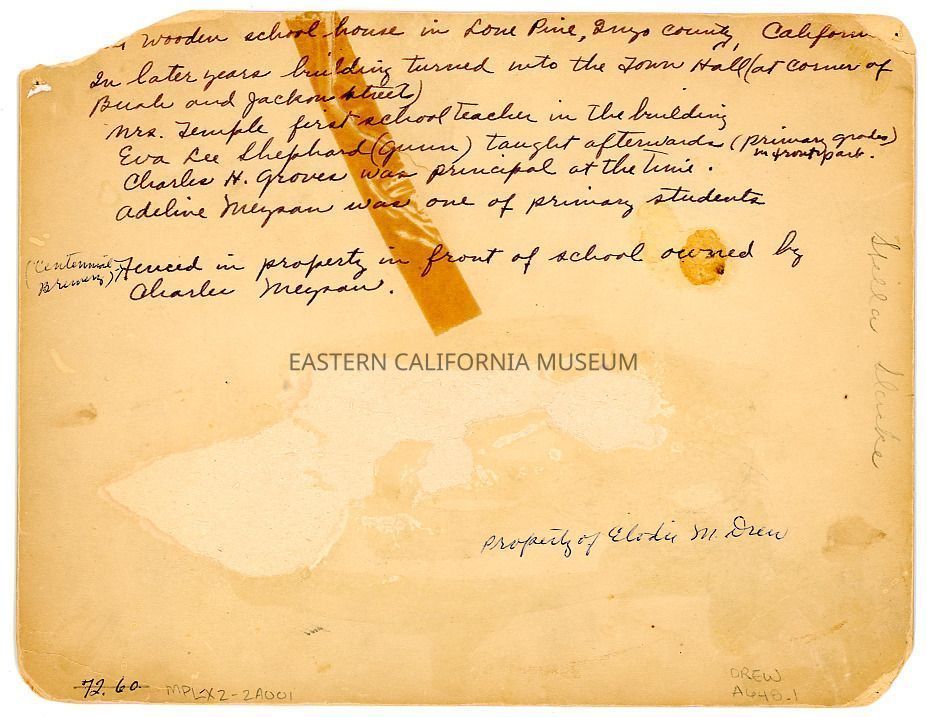 Wooden school house in Lone Pine, Inyo county, Californ
In later years building turned into the Town Hall (at corner of
Bush and Jackson street)
Mrs. Temple first schoolteacher in the building
Eva Lee Shephard (Gunn) taught afterwards (primary grades)
in front part.
Charles H. Groves was principal at the time.
Adeline Meysan was one of primary students
(Centennial
Brewery)
Fenced in property in front of school owned by
Charles Meysan.
Stella
EASTERN CALIFORNIA MUSEUM
Property of Elodie M. Drew
72.60
MPLX2-2A001
DREW
A648-1